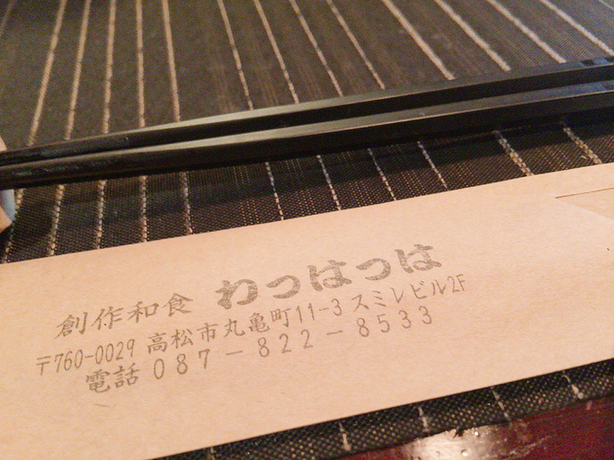 創作和食 わっはっは
〒760-0029 高松市丸亀町11-3 スミレビル2F
電話 087-822-8533